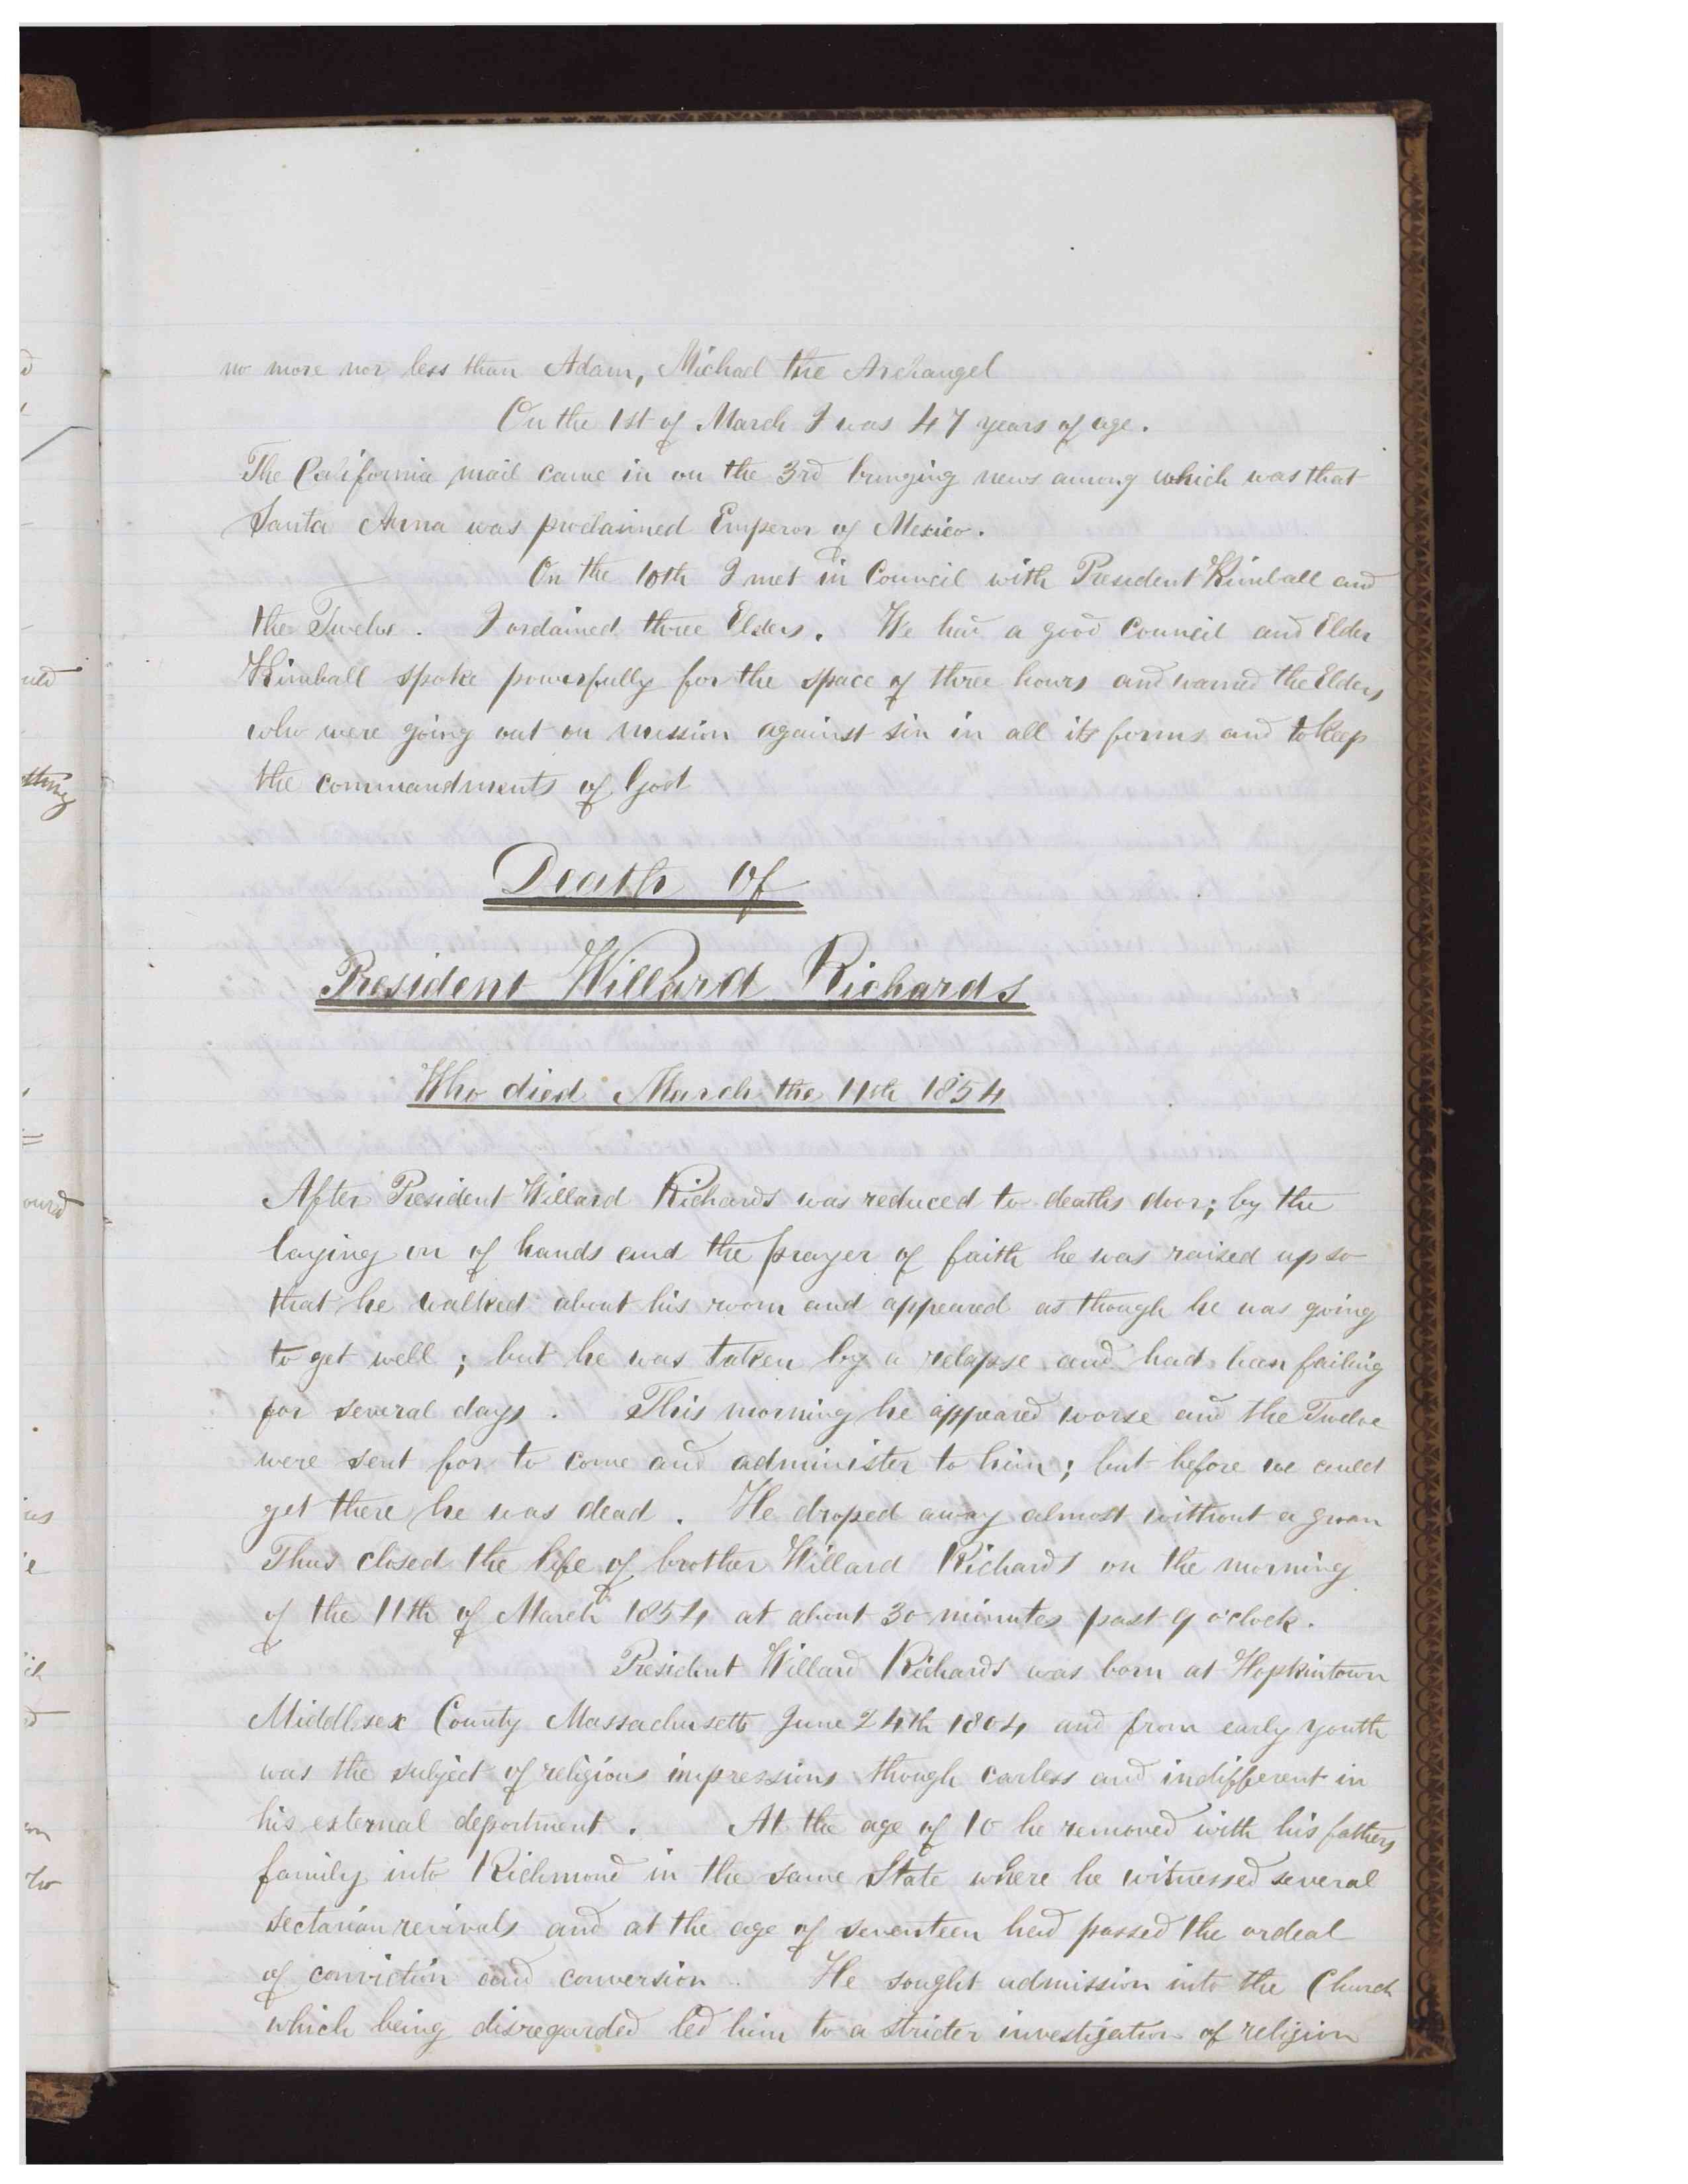 no more nor less than Adam, Michael the Archangel
On the 1st of March I was 47 years of age.
The California mail came in on the 3rd bringing news among which was that
Santa Anna was proclaimed Emperor of Mexico.
On the 10th I met in Council with President Kimball and
the Twelve. I ordained three Elders. We had a good council and Elder
Kimball spoke powerfully for the space of three hours and warned the Elders
who were going out on mission against sin in all its forms and to keep
the commandments of God
Death of
President Willard Richards
Who died March the 11th 1854
After President Willard Richards was reduced to deaths door; by the
laying on of hands and the prayer of faith he was raised up so
that he walked about his room and appeared as though he was going
to get well; but he was taken by a relapse and had been failing
for several days. This morning he appeared worse and the Twelve
were sent for to come and administer to him; but before we could
get there he was dead. He droped away almost without a groan
Thus closed the life of brother Willard Richards on the morning
of the 11th of March 1854 at about 30 minutes past 9 o'clock.
President Willard Richards was born at Hopkintown
Middlesex County Massachusetts June 24th 1804 and from early youth
was the subject of religious impressions though carless and indifferent in
his external deportment. At the age of 10 he removed with his fathers
family into Richmond in the same State where he witnessed several
sectarian revivals and at the age of seventeen had passed the ordeal
of conviction and conversion. He sought admission into the Church
which being disregarded led him to a stricter investigation of religion